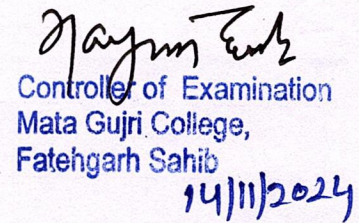 Controller of Examination
Mata Gujri College,
Fatehgarh Sahib
14/11/2024